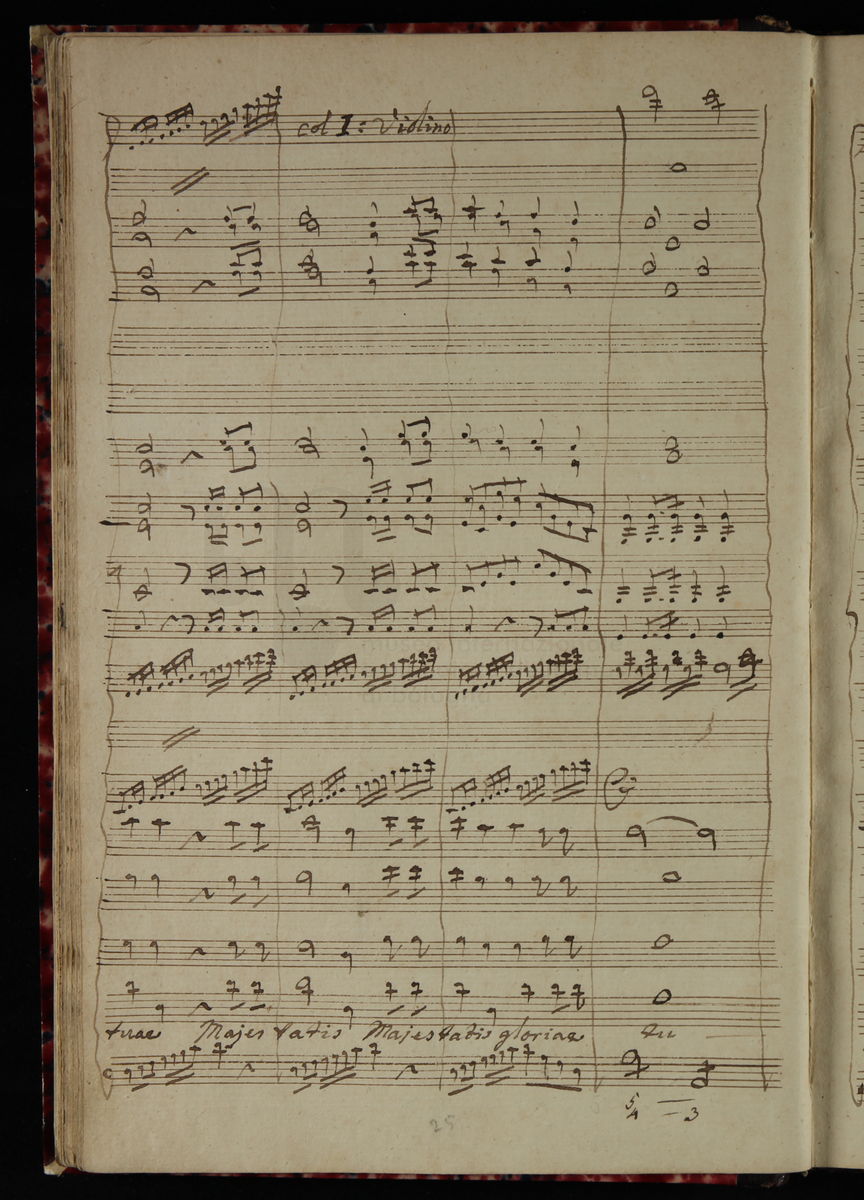 col I: Violino
tuae Majes tatis Majestatis gloriae tu
5
4 — 3
25